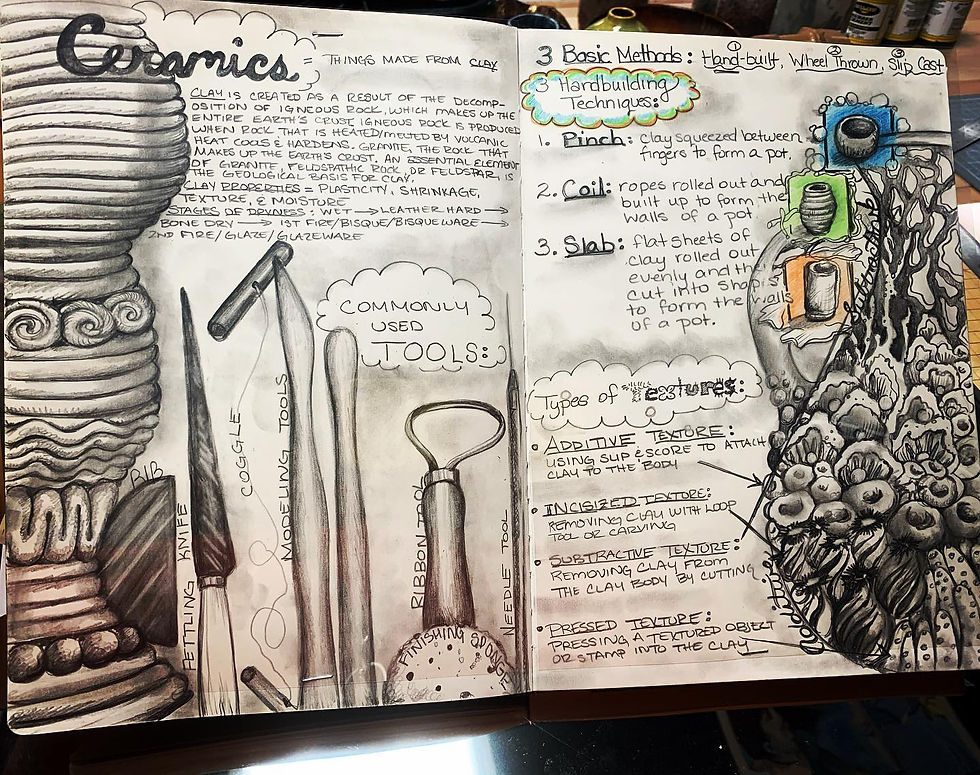 Ceramics = THINGS MADE FROM CLAY
CLAY IS CREATED AS A RESULT OF THE DECOMP-
OSITION OF IGNEOUS ROCK, WHICH MAKES UP THE
ENTIRE EARTH'S CRUST. IGNEOUS ROCK IS PRODUCED
WHEN ROCK THAT IS HEATED/MELTED BY VOLCANIC
HEAT COOLS & HARDENS. GRANITE, THE ROCK THAT
MAKES UP THE EARTH'S CRUST, AN ESSENTIAL ELEMENT
OF GRANITE, FELDSPATHIC ROCK, OR FELDSPAR, IS
THE GEOLOGICAL BASIS FOR CLAY.
CLAY PROPERTIES = PLASTICITY, SHRINKAGE,
TEXTURE, & MOISTURE
STAGES OF DRYNESS: WET → LEATHER HARD →
BONE DRY → 1ST FIRE/BISQUE/BISQUEWARE →
2ND FIRE/GLAZE/GLAZEWARE
COMMONLY
USED
TOOLS:
RIB
FETTLING KNIFE
TOGGLE
MODELING TOOLS
RIBBON TOOL
NEEDLE TOOL
FINISHING SPONGE
3 Basic Methods: ① Hand-built, ② Wheel Thrown, ③ Slip Cast
3 Handbuilding
Techniques:
1. Pinch: clay squeezed between
fingers to form a pot.
2. Coil: ropes rolled out and
built up to form the
walls of a pot.
3. Slab: flat sheets of
clay rolled out
evenly and th
cut into shapes
to form the walls
of a pot.
Types of Textures:
• ADDITIVE TEXTURE:
USING SLIP & SCORE TO ATTACH
CLAY TO THE BODY
• INCISIZED TEXTURE:
REMOVING CLAY WITH LOOP
TOOL OR CARVING
• SUBTRACTIVE TEXTURE:
REMOVING CLAY FROM
THE CLAY BODY BY CUTTING
• PRESSED TEXTURE:
PRESSING A TEXTURED OBJECT
OR STAMP INTO THE CLAY
Subtractive
additive